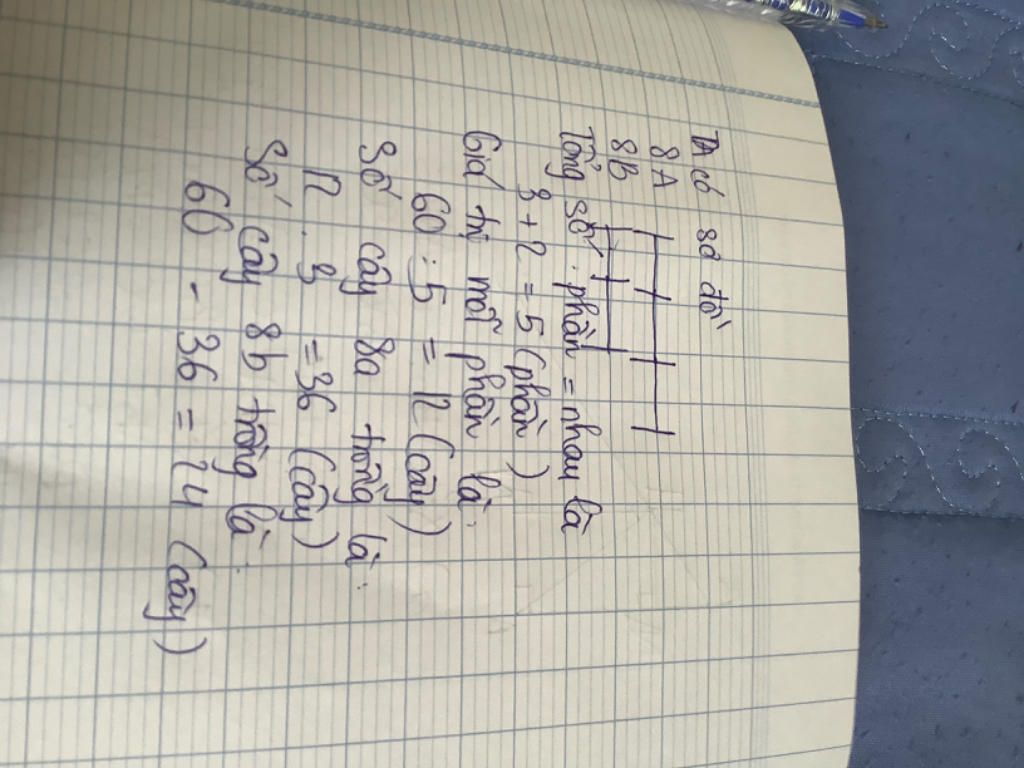 Ta có sơ đồ
8A
8B
Tổng số phần = nhau là
3 + 2 = 5 (phần)
Giá trị mỗi phần là:
60 : 5 = 12 (cây)
Số cây 8a trồng là:
12 . 3 = 36 (cây)
Số cây 8b trồng là:
60 - 36 = 24 (cây)